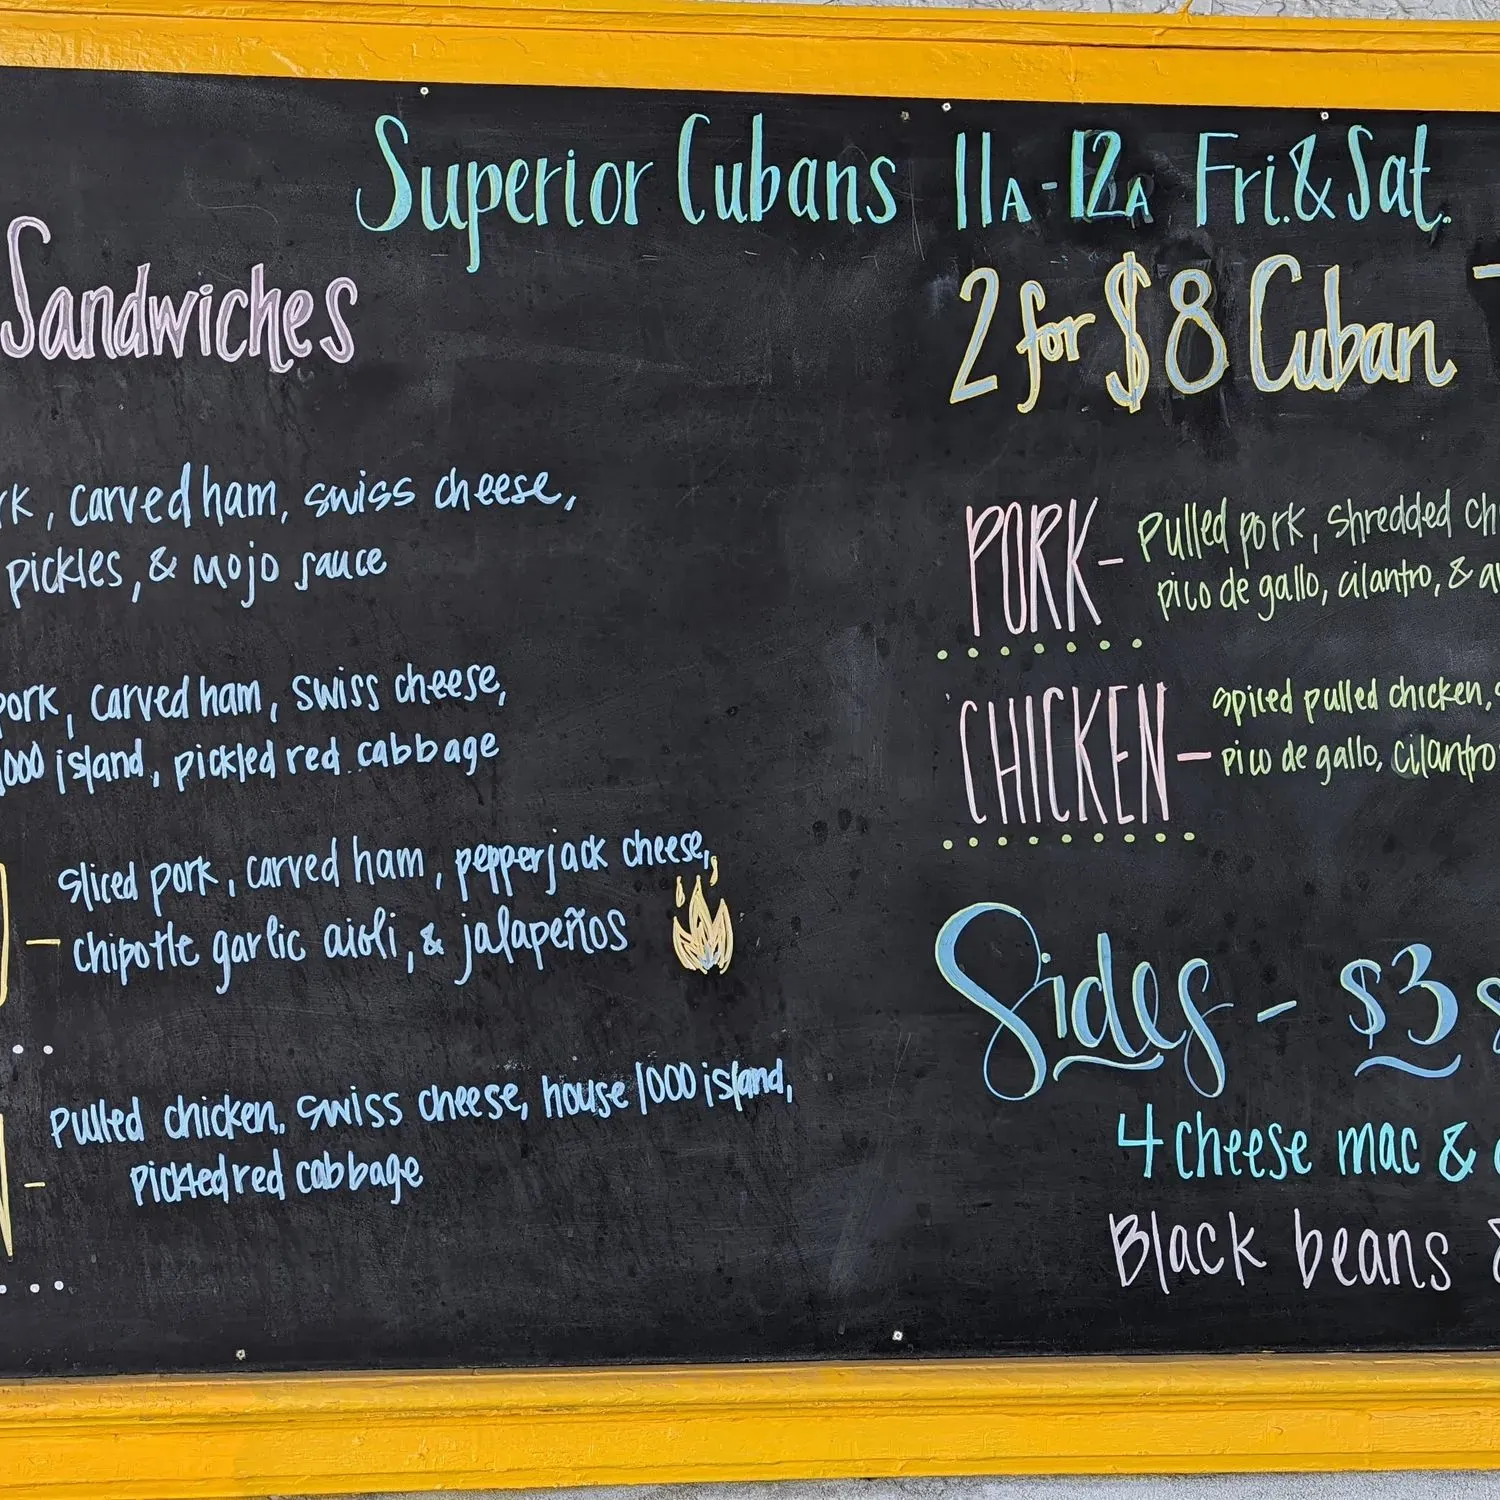 Superior Cubans 11A-12A Fri. & Sat.
Sandwiches
carved ham, swiss cheese,
pickles, & mojo sauce
pork, carved ham, swiss cheese,
1000 island, pickled red cabbage
- sliced pork, carved ham, pepperjack cheese,
chipotle garlic aioli, & jalapeños
- Pulled chicken, swiss cheese, house 1000 island,
pickled red cabbage
2 for $8 Cuban
PORK - Pulled pork, shredded
pico de gallo, cilantro, &
CHICKEN - spiced pulled chicken,
pico de gallo, cilantro
Sides - $3
4 cheese mac &
Black beans